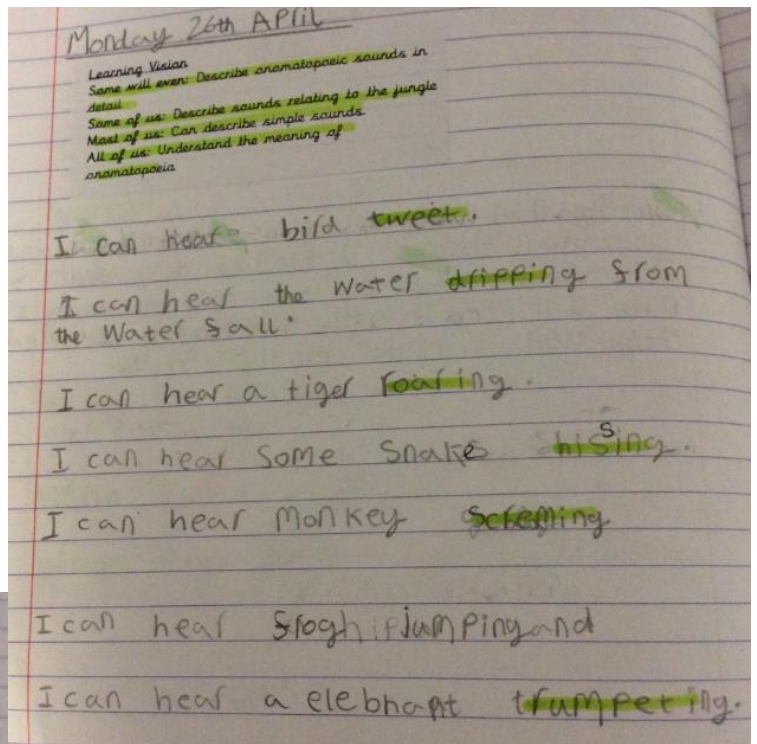 Monday 26th April
Learning Vision
Some will even: Describe onomatopoeic sounds in
detail
Some of us: Describe sounds relating to the jungle
Most of us: Can describe simple sounds
All of us: Understand the meaning of
onomatopoeia
I can hear bird tweet.
I can hear the water dripping from
the water fall.
I can hear a tiger roaring.
I can hear some snake hissing.
I can hear monkey screming
I can hear frog jumping and
I can hear a elebhant trumpeting.